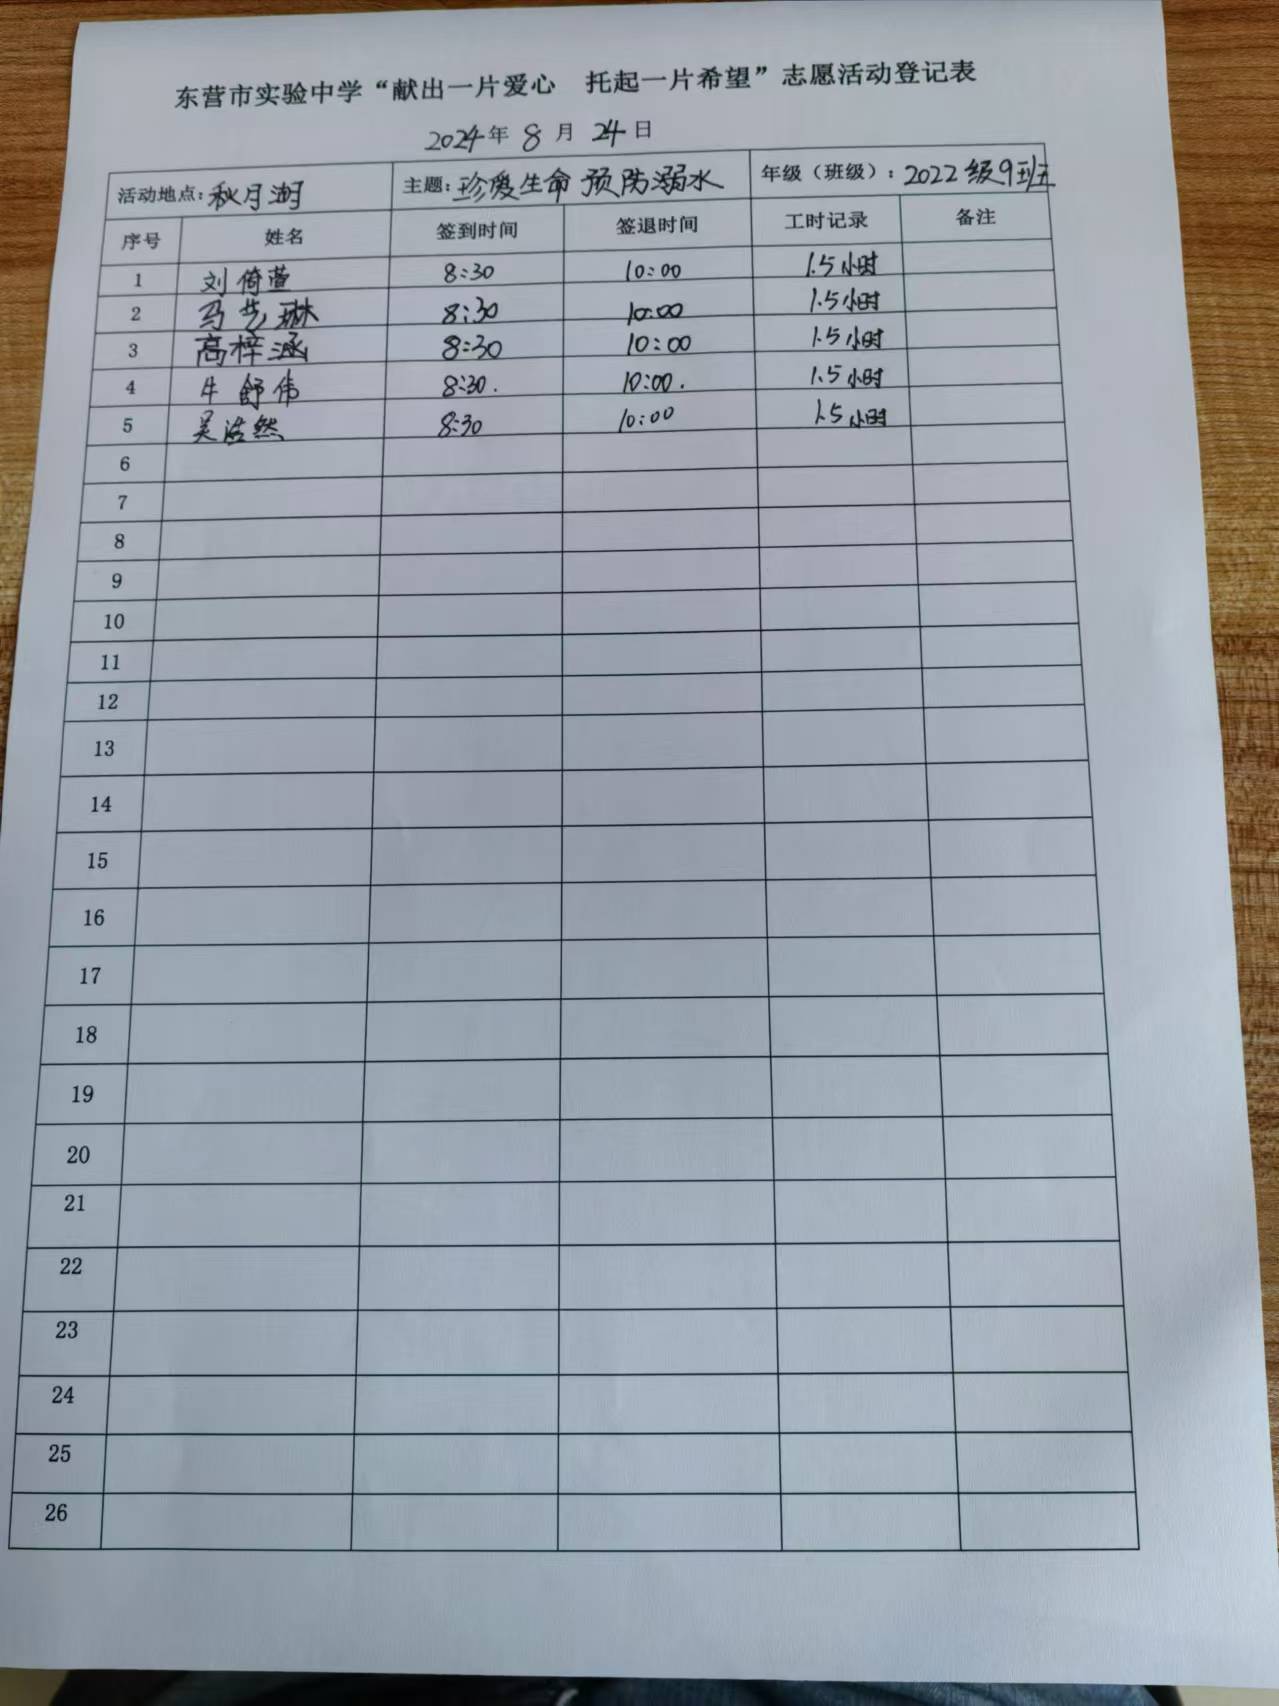 东营市实验中学“献出一片爱心　托起一片希望”志愿活动登记表
2024年 8 月 24 日
活动地点：秋月湖 主题：珍爱生命 预防溺水 年级（班级）：2022级9班
序号 姓名 签到时间 签退时间 工时记录 备注
1 刘倚萱 8:30 10:00 1.5小时
2 马艺琳 8:30 10:00 1.5小时
3 高梓涵 8:30 10:00 1.5小时
4 牛舒伟 8:30. 10:00. 1.5小时
5 吴浩然 8:30 10:00 1.5小时
6
7
8
9
10
11
12
13
14
15
16
17
18
19
20
21
22
23
24
25
26